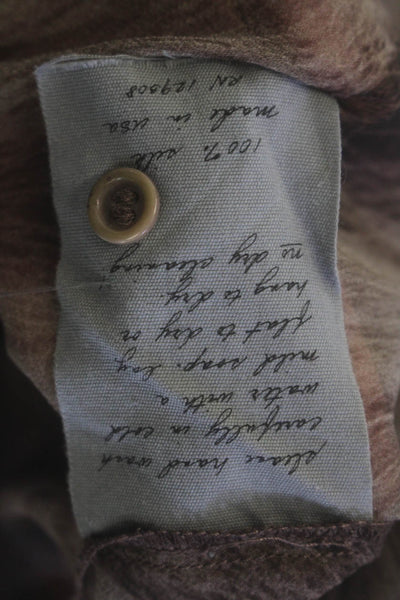 please hand wash
carefully in cold
water with a
mild soap. lay
flat to dry or
hang to dry.
no dry cleaning
100% silk
made in usa
RN 129508